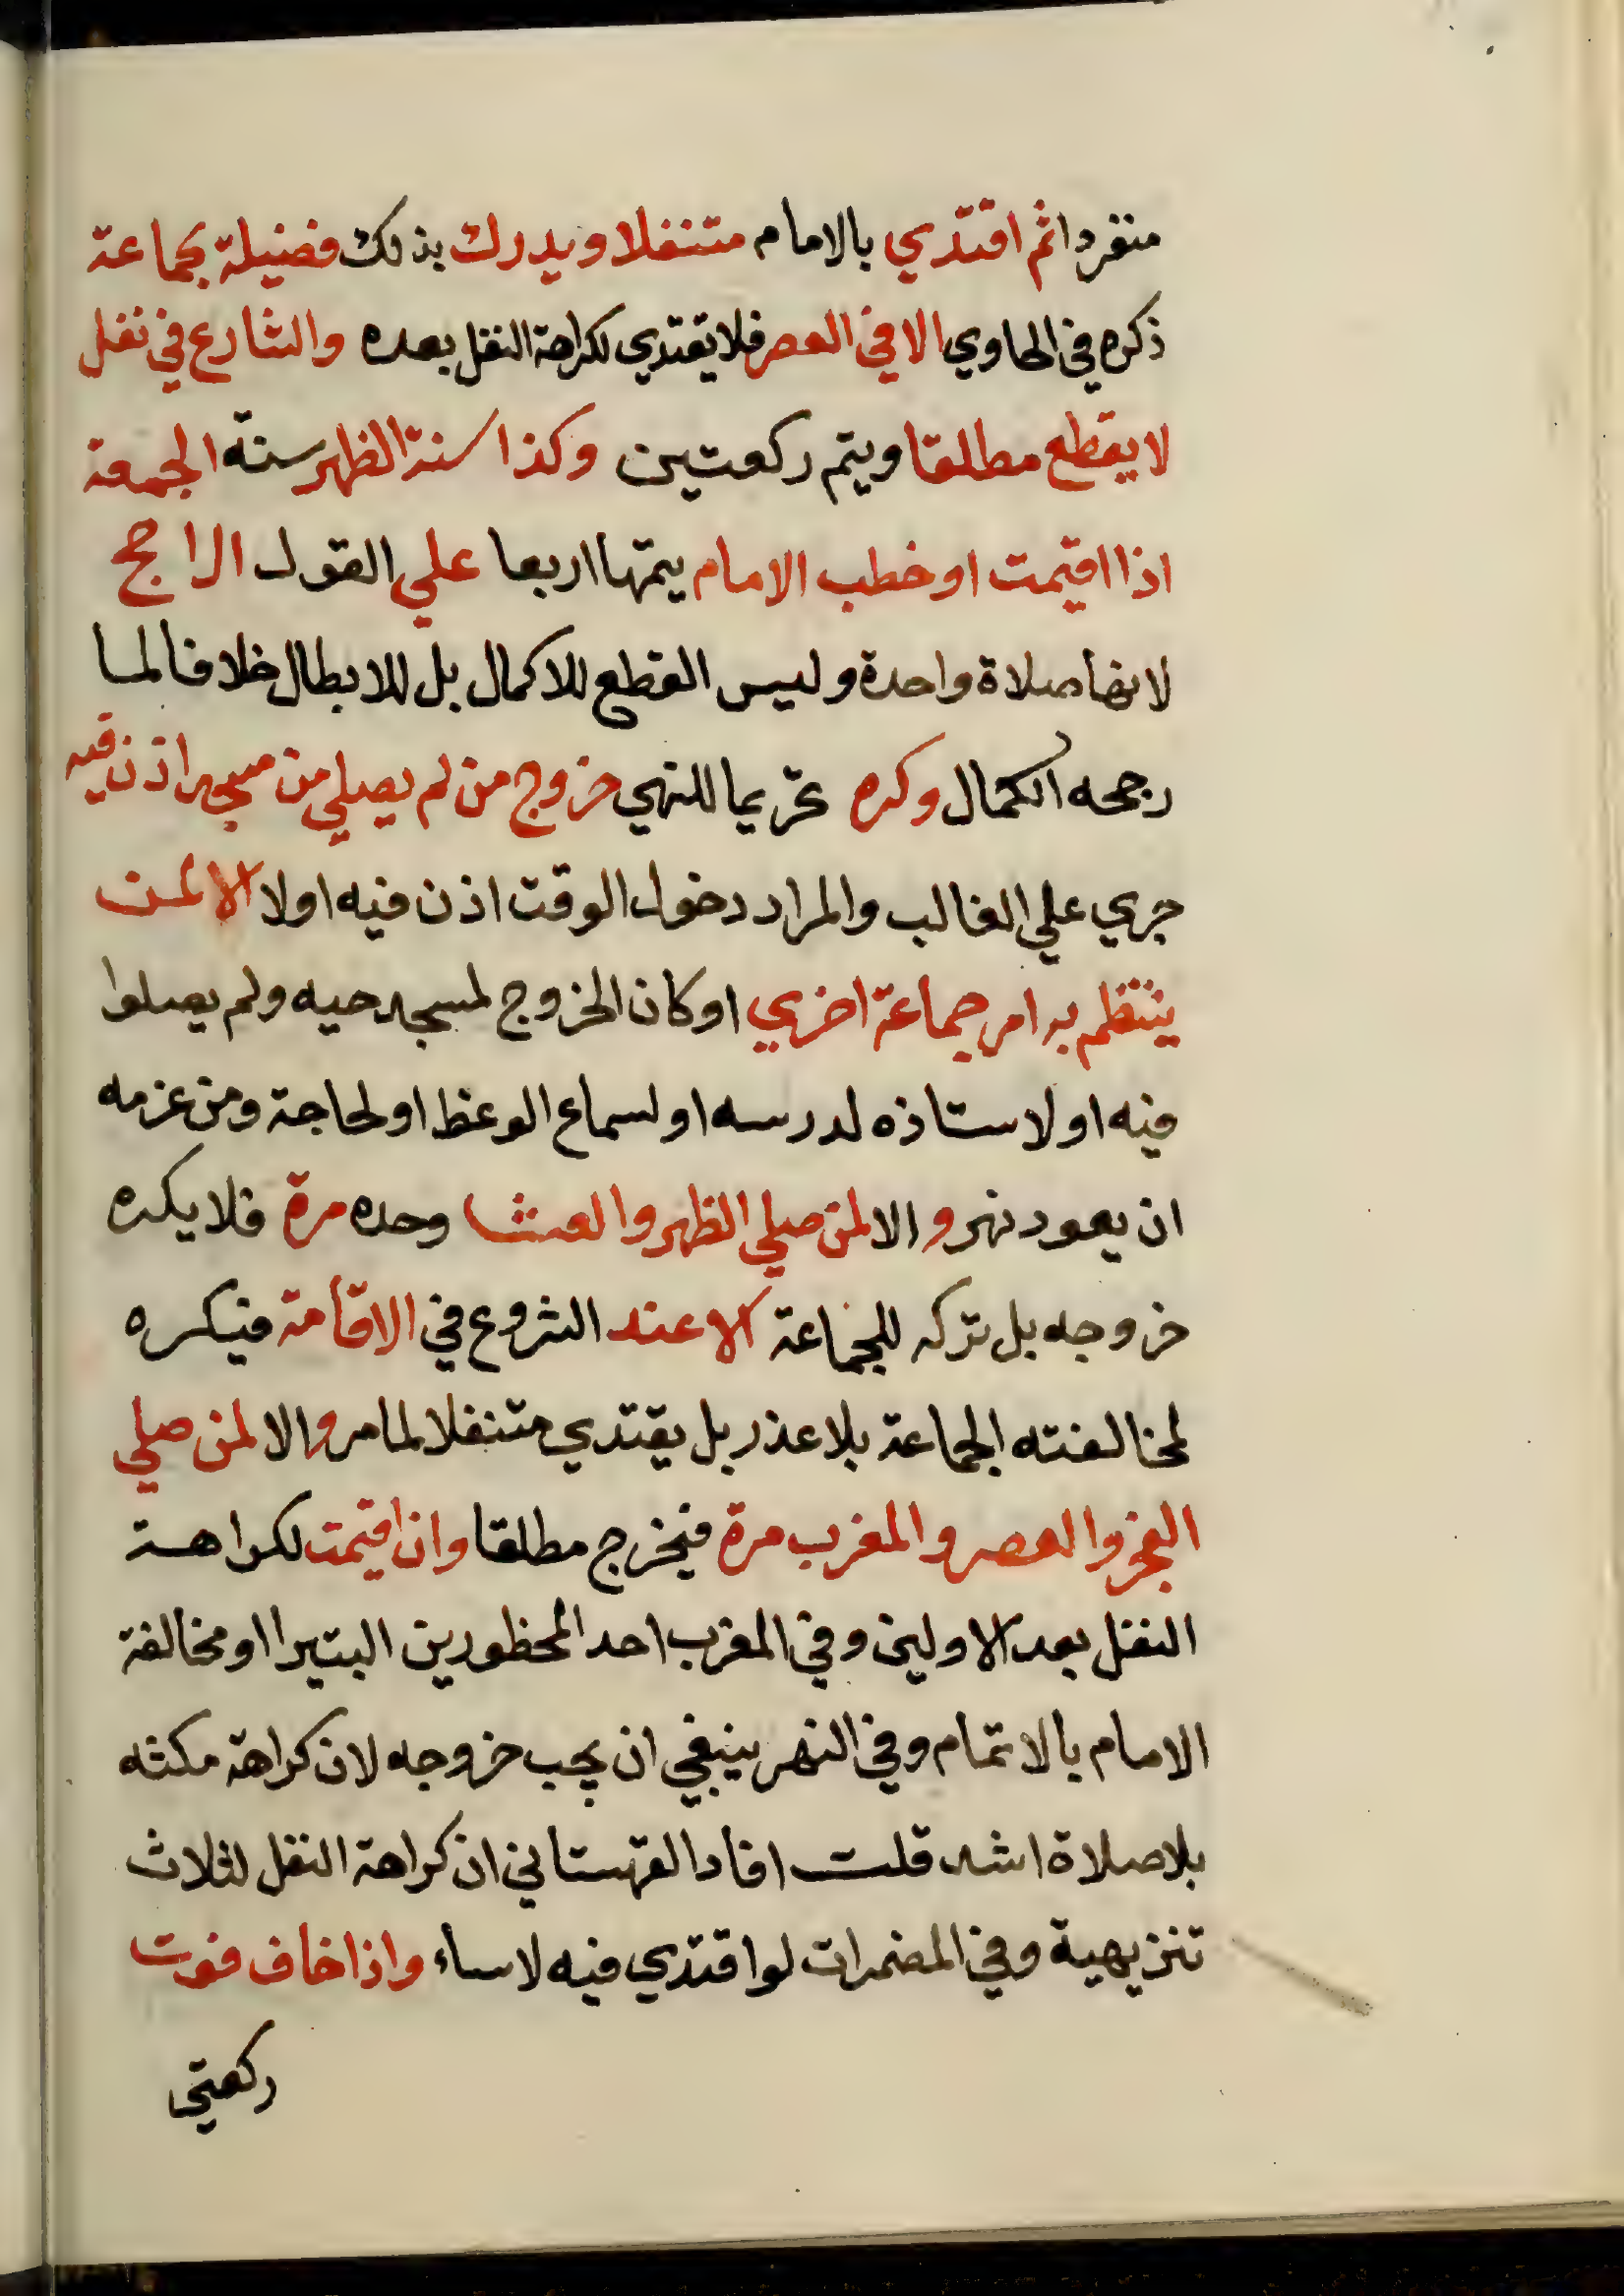 منفردا ثم اقتدي بالامام متنفلا ويدرك بذلك فضيلة بجماعة
ذكره في الحاوي الا في العصر فلا يقتدي لكراهة النفل بعده والشارع في نفل
لا يقطع مطلقا ويتم ركعتين وكذا سنة الظهر سنة الجمعة
اذا اقيمت او خطب الامام يتمها اربعا علي القول الراجح
لانها صلاة واحدة وليس القطع للاكمال بل للابطال خلافا لما
رجحه الكمال وكره تحريما للنهي خروج من لم يصلي من مسجد اذن فيه
جري علي الغالب والمراد دخول الوقت اذن فيه اولا الا لمن
ينتظم به امر جماعة اخري او كان الخروج لمسجد حيه ولم يصلوا
فيه او لاستاذه لدرسه او لسماع الوعظ او لحاجة ومن عزمه
ان يعود نهر و الا لمن صلي الظهر والعشا وحده مرة فلا يكره
خروجه بل تركه للجماعة الا عند الشروع في الاقامة فيكره
لمخالفته الجماعة بلا عذر بل يقتدي متنفلا لما مر والا لمن صلي
الفجر والعصر والمغرب مرة فيخرج مطلقا وان اقيمت لكراهة
النفل بعد الاولين وفي المغرب احد المحظورين البتيرا او مخالفة
الامام بالاتمام وفي النهر ينبغي ان يجب خروجه لان كراهة مكثه
بلا صلاة اشد قلت افاد القهستاني ان كراهة النفل لثلاث
تنزيهية وفي المضمرات لو اقتدي فيه لاساء واذا خاف فوت
ركعتي